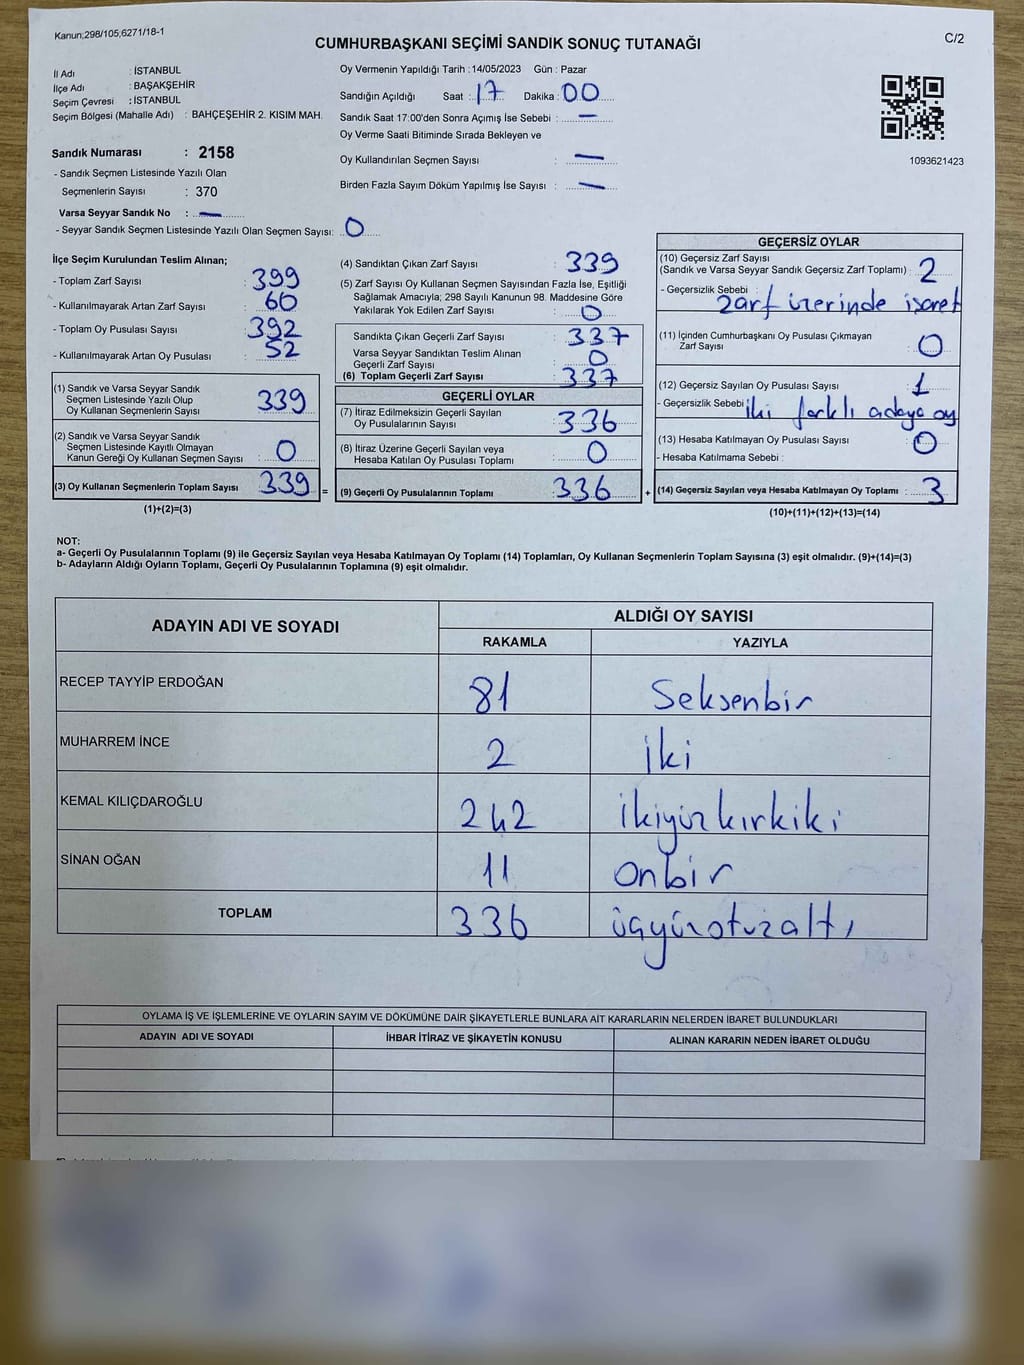 Kanun;298/105,6271/18-1
C/2
CUMHURBAŞKANI SEÇİMİ SANDIK SONUÇ TUTANAĞI
İl Adı : İSTANBUL
İlçe Adı : BAŞAKŞEHİR
Seçim Çevresi : İSTANBUL
Seçim Bölgesi (Mahalle Adı) : BAHÇEŞEHİR 2. KISIM MAH.
Sandık Numarası : 2158
- Sandık Seçmen Listesinde Yazılı Olan
Seçmenlerin Sayısı : 370
Varsa Seyyar Sandık No : —
- Seyyar Sandık Seçmen Listesinde Yazılı Olan Seçmen Sayısı: 0
Oy Vermenin Yapıldığı Tarih : 14/05/2023 Gün : Pazar
Sandığın Açıldığı Saat : 17 Dakika : 00
Sandık Saat 17:00'den Sonra Açımış İse Sebebi : —
Oy Verme Saati Bitiminde Sırada Bekleyen ve
Oy Kullandırılan Seçmen Sayısı : —
Birden Fazla Sayım Döküm Yapılmış İse Sayısı : —
1093621423
İlçe Seçim Kurulundan Teslim Alınan;
- Toplam Zarf Sayısı : 399
- Kullanılmayarak Artan Zarf Sayısı : 60
- Toplam Oy Pusulası Sayısı : 392
- Kullanılmayarak Artan Oy Pusulası : 52
(1) Sandık ve Varsa Seyyar Sandık
Seçmen Listesinde Yazılı Olup
Oy Kullanan Seçmenlerin Sayısı : 339
(2) Sandık ve Varsa Seyyar Sandık
Seçmen Listesinde Kayıtlı Olmayan
Kanun Gereği Oy Kullanan Seçmen Sayısı : 0
(3) Oy Kullanan Seçmenlerin Toplam Sayısı : 339
(1)+(2)=(3)
=
(4) Sandıktan Çıkan Zarf Sayısı : 339
(5) Zarf Sayısı Oy Kullanan Seçmen Sayısından Fazla İse, Eşitliği
Sağlamak Amacıyla; 298 Sayılı Kanunun 98. Maddesine Göre
Yakılarak Yok Edilen Zarf Sayısı : 0
Sandıkta Çıkan Geçerli Zarf Sayısı : 337
Varsa Seyyar Sandıktan Teslim Alınan
Geçerli Zarf Sayısı : 0
(6) Toplam Geçerli Zarf Sayısı : 337
GEÇERLİ OYLAR
(7) İtiraz Edilmeksizin Geçerli Sayılan
Oy Pusulalarının Sayısı : 336
(8) İtiraz Üzerine Geçerli Sayılan veya
Hesaba Katılan Oy Pusulası Toplamı : 0
(9) Geçerli Oy Pusulalarının Toplamı : 336
+
GEÇERSİZ OYLAR
(10) Geçersiz Zarf Sayısı
(Sandık ve Varsa Seyyar Sandık Geçersiz Zarf Toplamı) : 2
- Geçersizlik Sebebi :
Zarf üzerinde işaret
(11) İçinden Cumhurbaşkanı Oy Pusulası Çıkmayan
Zarf Sayısı : 0
(12) Geçersiz Sayılan Oy Pusulası Sayısı : 1
- Geçersizlik Sebebi : iki farklı adaya oy
(13) Hesaba Katılmayan Oy Pusulası Sayısı : 0
- Hesaba Katılmama Sebebi :
(14) Geçersiz Sayılan veya Hesaba Katılmayan Oy Toplamı : 3
(10)+(11)+(12)+(13)=(14)
NOT:
a- Geçerli Oy Pusulalarının Toplamı (9) ile Geçersiz Sayılan veya Hesaba Katılmayan Oy Toplamı (14) Toplamları, Oy Kullanan Seçmenlerin Toplam Sayısına (3) eşit olmalıdır. (9)+(14)=(3)
b- Adayların Aldığı Oyların Toplamı, Geçerli Oy Pusulalarının Toplamına (9) eşit olmalıdır.
ADAYIN ADI VE SOYADI ALDIĞI OY SAYISI
RAKAMLA YAZIYLA
RECEP TAYYİP ERDOĞAN 81 Seksenbir
MUHARREM İNCE 2 İki
KEMAL KILIÇDAROĞLU 242 İkiyüzkırkiki
SİNAN OĞAN 11 Onbir
TOPLAM 336 üçyüzotuzaltı
OYLAMA İŞ VE İŞLEMLERİNE VE OYLARIN SAYIM VE DÖKÜMÜNE DAİR ŞİKAYETLERLE BUNLARA AİT KARARLARIN NELERDEN İBARET BULUNDUKLARI
ADAYIN ADI VE SOYADI İHBAR İTİRAZ VE ŞİKAYETİN KONUSU ALINAN KARARIN NEDEN İBARET OLDUĞU